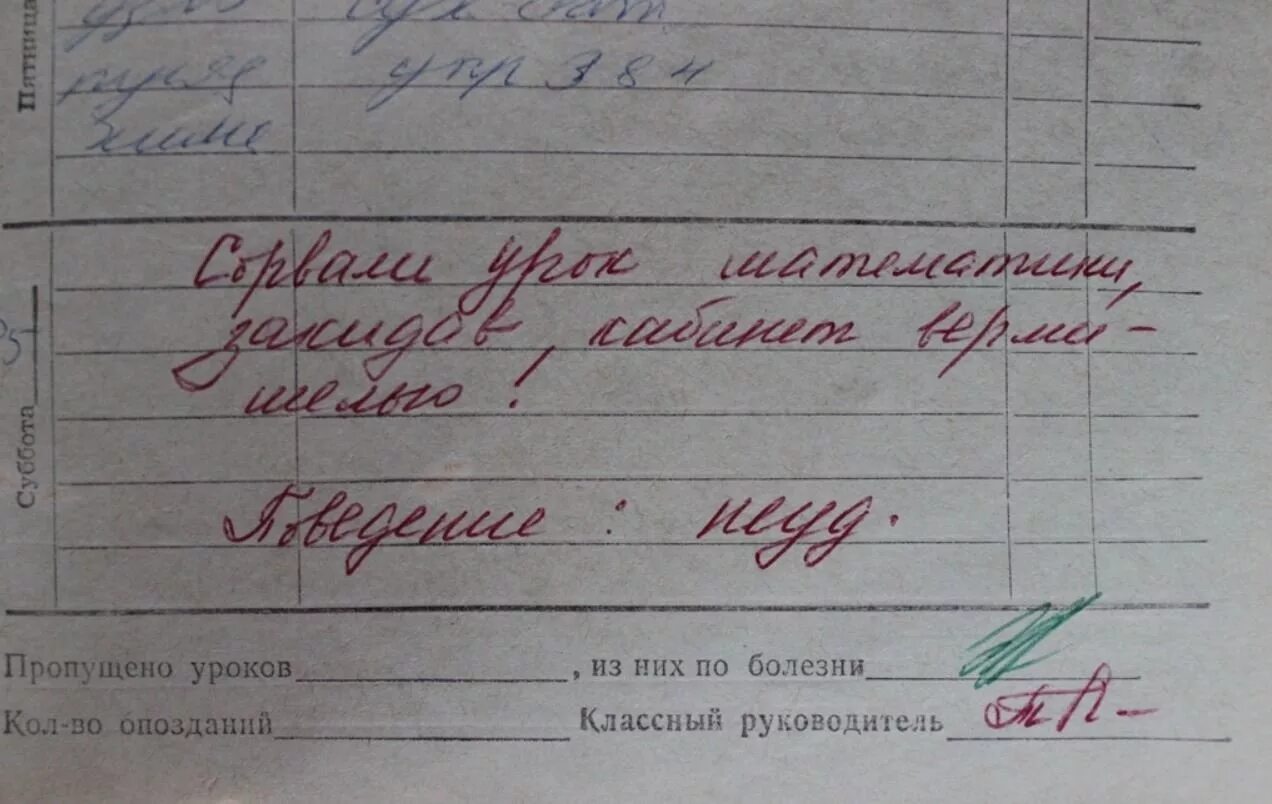 Пятница
упр 384
Сорвали урок математики,
закидав кабинет верми-
шелью!
Суббота
Поведение: неуд.
Пропущено уроков, из них по болезни
Кол-во опозданий Классный руководитель